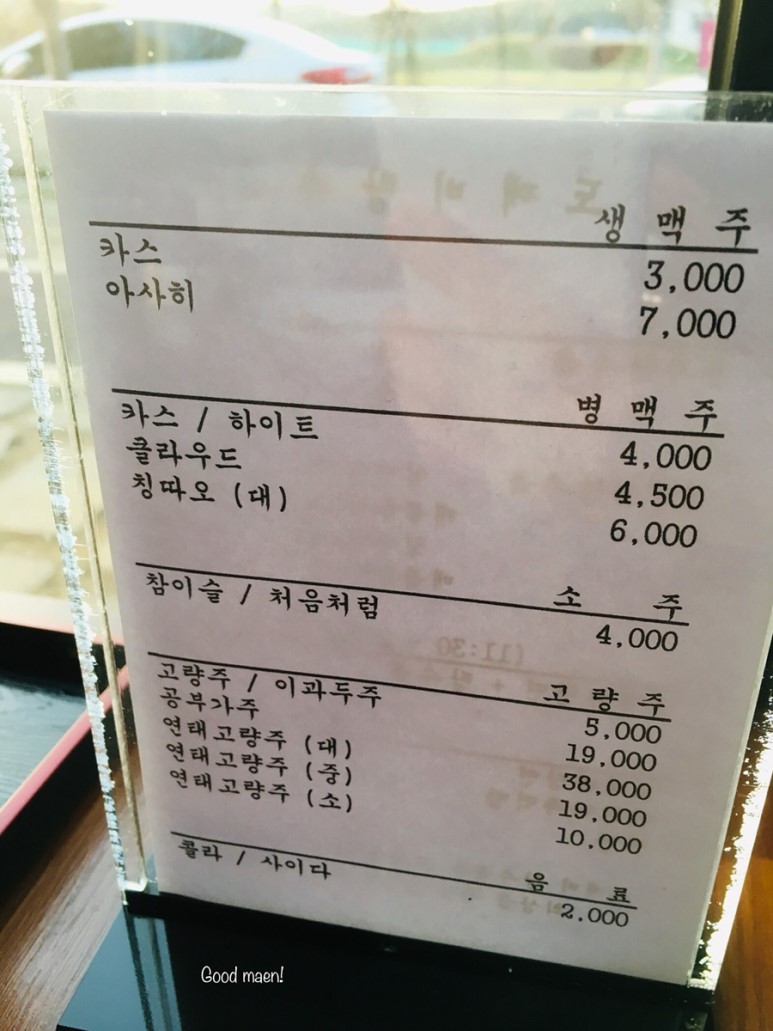 생 맥 주
카스 3,000
아사히 7,000
병 맥 주
카스 / 하이트 4,000
클라우드 4,500
칭따오 (대) 6,000
소 주
참이슬 / 처음처럼 4,000
고 량 주
고량주 / 이과두주 5,000
공부가주 19,000
연태고량주 (대) 38,000
연태고량주 (중) 19,000
연태고량주 (소) 10,000
음 료
콜라 / 사이다 2,000
Good maen!